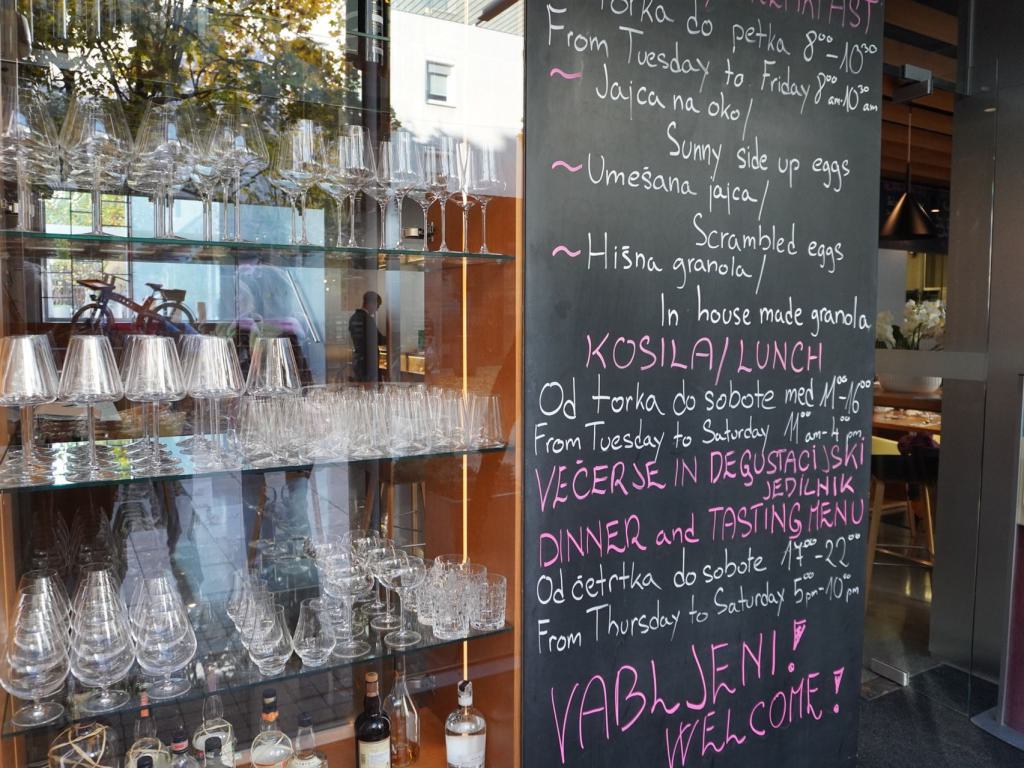 BREAKFAST
torka do petka 8⁰⁰-10³⁰
From Tuesday to Friday 8⁰⁰am-10³⁰am
~ Jajca na oko/
Sunny side up eggs
~ Umešana jajca/
Scrambled eggs
~ Hišna granola/
In house made granola
KOSILA/LUNCH
Od torka do sobote med 11⁰⁰-16⁰⁰
From Tuesday to Saturday 11⁰⁰am-4⁰⁰pm
VEČERJE IN DEGUSTACIJSKI
JEDILNIK
DINNER and TASTING MENU
Od četrtka do sobote 17⁰⁰-22⁰⁰
From Thursday to Saturday 5⁰⁰pm-10⁰⁰pm
VABLJENI!
WELCOME!